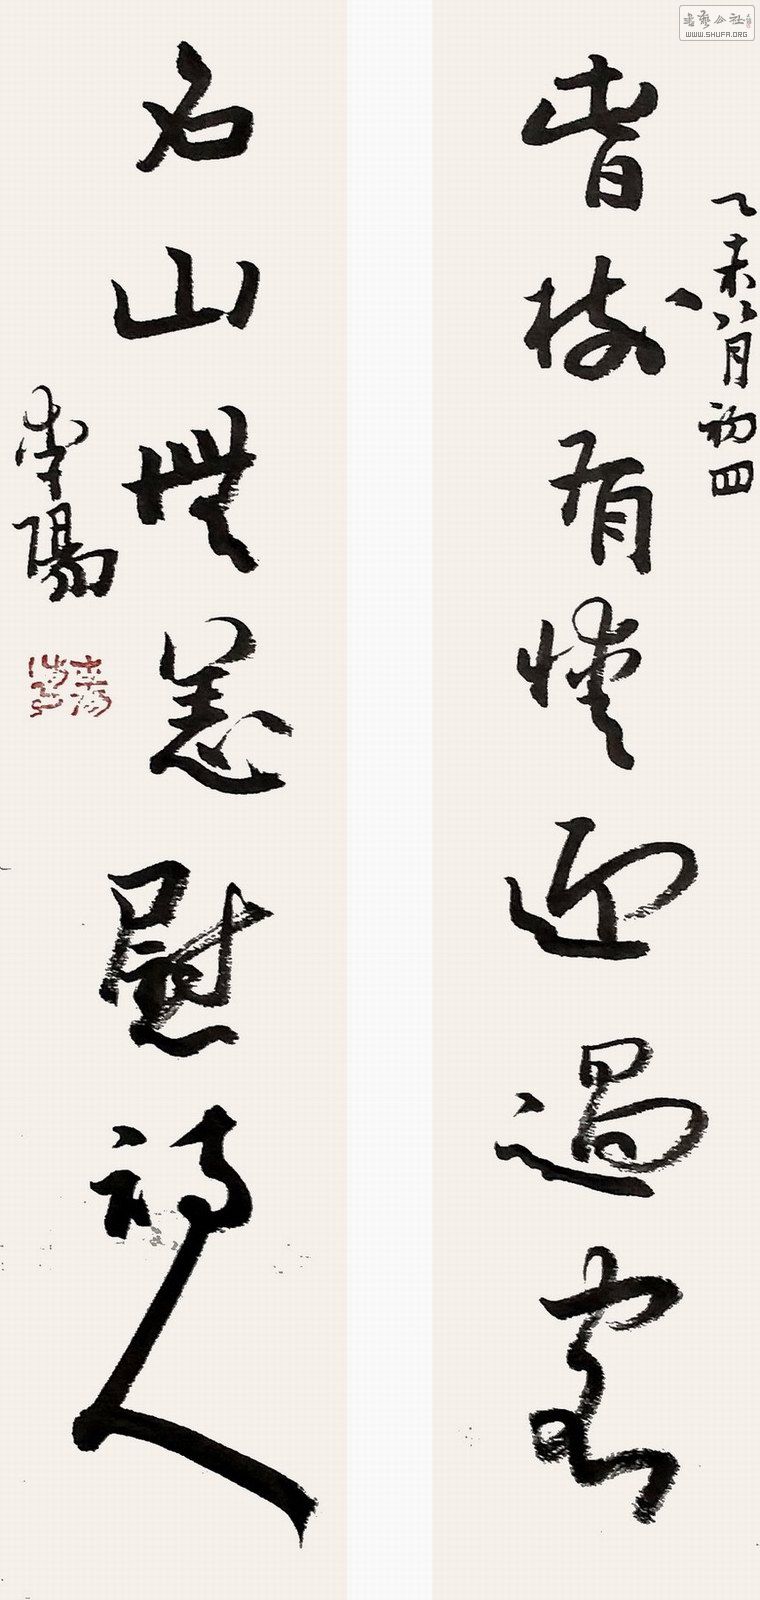 書藝公社
WWW.SHUFA.ORG
乙未八月初四
旾樹有情迎過客
名山無恙慰詩人
李陽